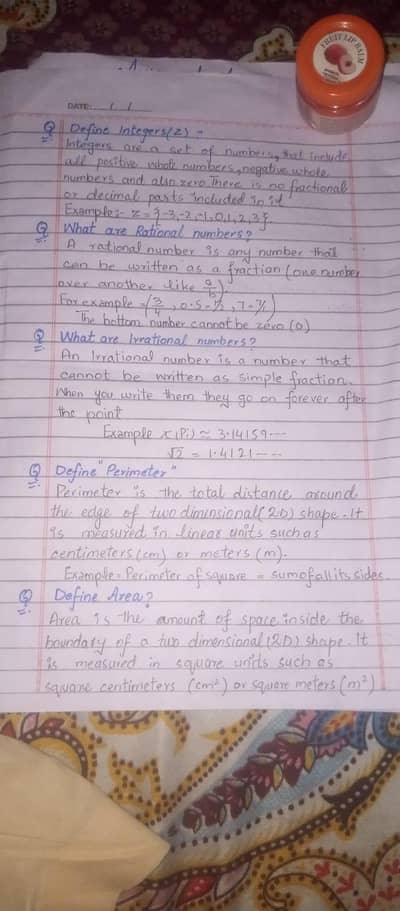 FRUIT LIP BALM
DATE: / /
Q Define Integers(z) -
Integers are a set of numbers, that include
all positive whole numbers, negative whole
numbers and also zero. There is no fractional
or decimal parts included in it
Example:- z = {-3,-2,-1,0,1,2,3}.
Q What are Rational numbers?
A rational number is any number that
can be written as a fraction (one number
over another like a/b).
For example = (3/4, 0.5 = 1/2, 7 = 7/1)
The bottom number cannot be zero (0)
Q What are Irrational numbers?
An Irrational number is a number that
cannot be written as simple fraction.
When you write them they go on forever after
the point
Example π(Pi) ≈ 3.14159---
√2 = 1.4121---
Q Define "Perimeter"
Perimeter is the total distance around
the edge of two dimensional(2D) shape. It
is measured in linear units such as
centimeters (cm) or meters (m).
Example = Perimeter of square = sum of all its sides.
Q Define Area?
Area is the amount of space inside the
boundary of a two dimensional (2D) shape. It
is measured in square units such as
square centimeters (cm²) or square meters (m²)